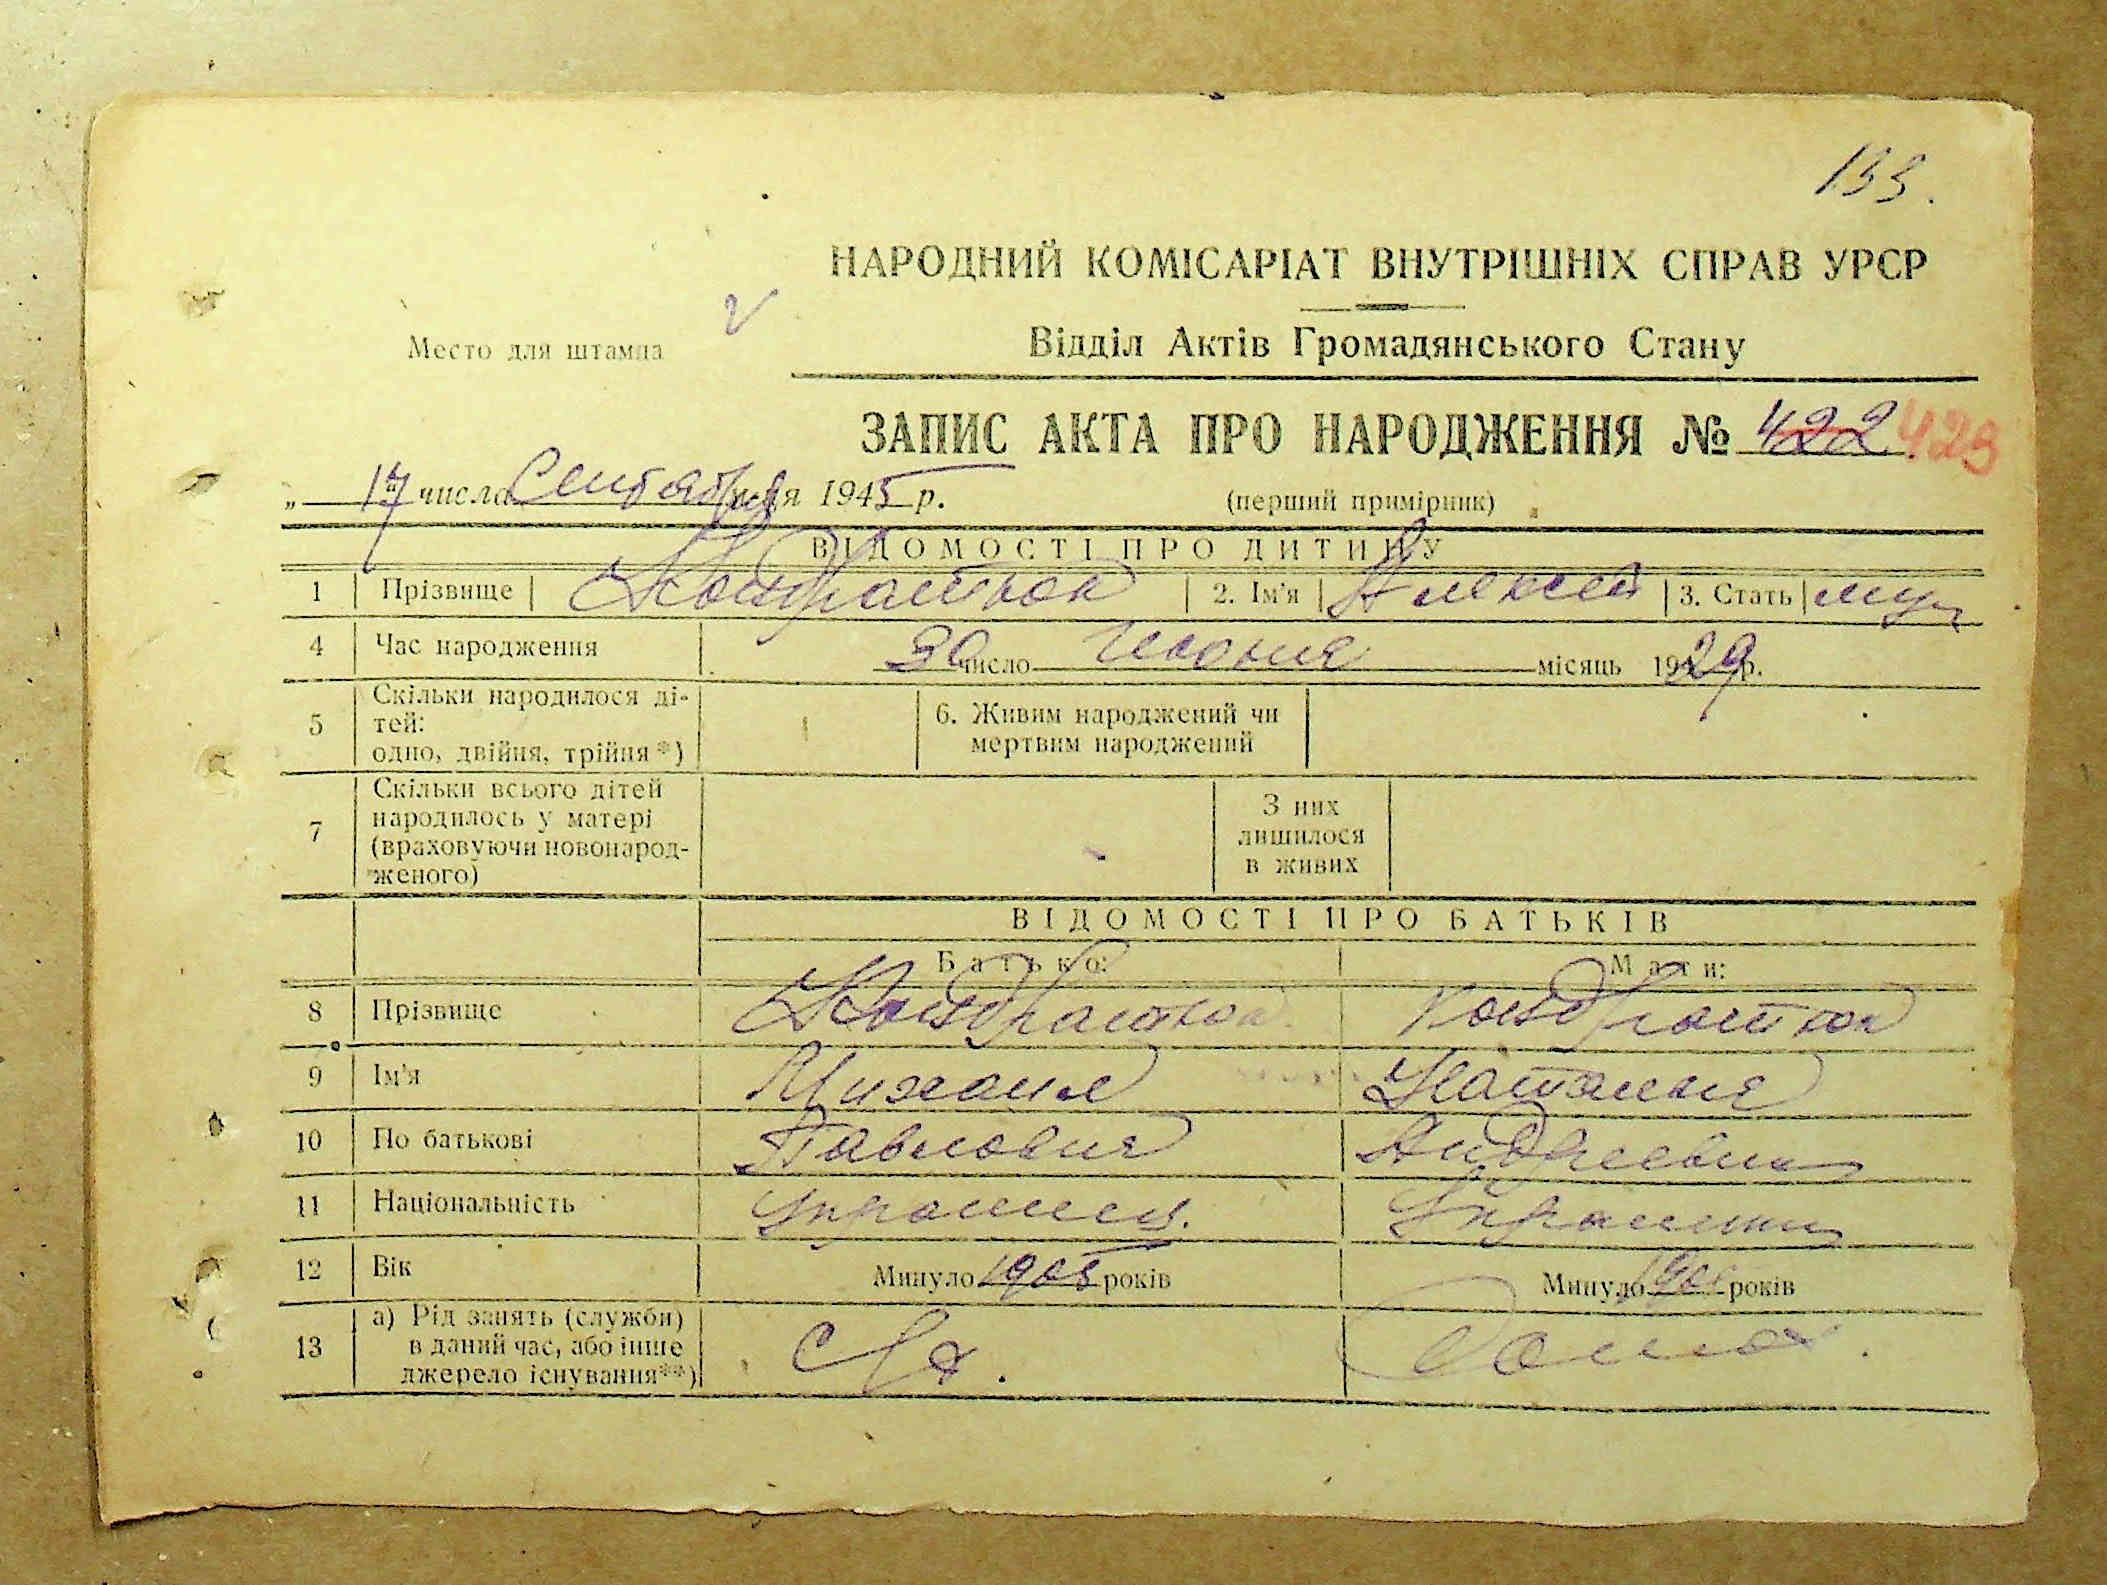 133.
НАРОДНИЙ КОМІСАРІАТ ВНУТРІШНІХ СПРАВ УРСР
Место для штампа
Відділ Актів Громадянського Стану
ЗАПИС АКТА ПРО НАРОДЖЕННЯ № 422 423
„ 17 " числа Сентября 1945 р. (перший примірник)
ВІДОМОСТІ ПРО ДИТИНУ
1 Прізвище Кондратюк 2. Ім'я Алексей 3. Стать муж
4 Час народження 30 число Июня місяць 1929 р.
5 Скільки народилося ді-
тей:
одно, двійня, трійня *)
6. Живим народжений чи
мертвим народжений
7 Скільки всього дітей
народилось у матері
(враховуючи новонарод-
женого)
З них
лишилося
в живих
ВІДОМОСТІ ПРО БАТЬКІВ
Батько: Мати:
8 Прізвище Кондратюк Кондратюк
9 Ім'я Михаил Наталия
10 По батькові Павлович Андреевна
11 Національність украинец. Украинка
12 Вік Минуло 1905 років Минуло років
13 а) Рід занять (служби)
в даний час, або інше
джерело існування**)